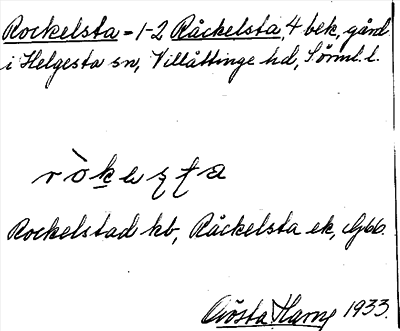 Rockelsta = 1-2 Råckelsta, 4 bek, gård
i Helgesta sn, Villåttinge hd, Sörml. l.
Rockelstad kb, Råckelsta ek, Gbb.
Gösta Harne 1933.